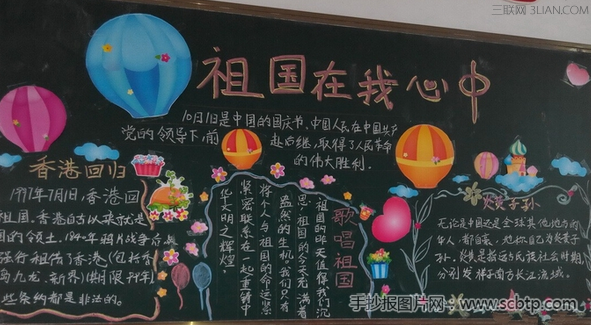 三联网 3LIAN.COM
祖国在我心中
10月1日是中国的国庆节、中国人民在中国共产
党的领导下,前赴后继,取得了人民革命
的伟大胜利.
香港回归
1997年7月1日,香港回
祖国。香港自古以来就是
国的领土.1840年鸦片战争后
强行租借了香港(包括香
岛九龙、新界)(期限99年)
些条约都是非法的。
歌唱祖国
祖国的昨天值得我们沉
思,祖国的今天充满着
盎然的生机,我们只有
将个人与祖国的命运
紧密联系在一起重铸中
华文明之辉煌
炎黄子孙
无论是中国还是全球其他地方的
年人,都自豪,地称自己为炎黄子
孙。炎黄是氏族社会时期
分别发祥于南方长江流域。
手抄报图片网---www.scbtp.com